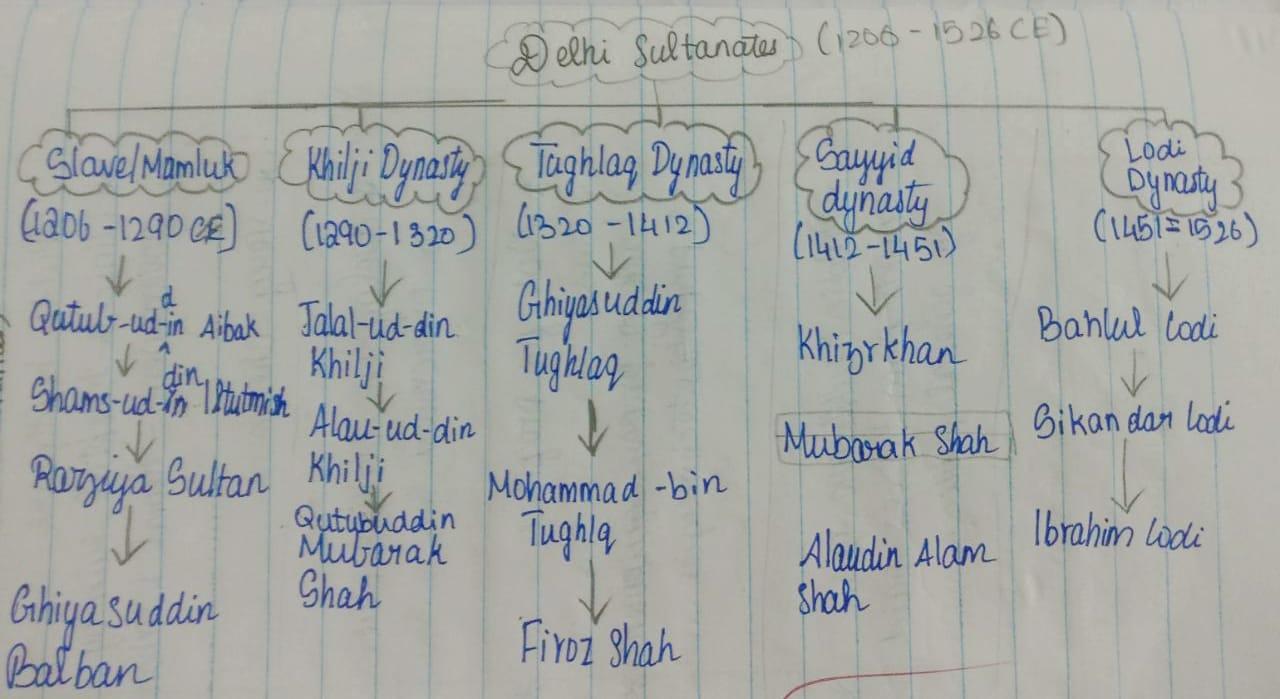 Delhi Sultanates (1206-1526 CE)
Slave/Mamluk
(1206-1290 CE)
Qutub-ud-din Aibak
Shams-ud-din Iltutmish
Raziya Sultan
Ghiyasuddin
Balban
Khilji Dynasty
(1290-1320)
Jalal-ud-din
Khilji
Alau-ud-din
Khilji
Qutubuddin
Mubarak
Shah
Tughlaq Dynasty
(1320-1412)
Ghiyasuddin
Tughlaq
Mohammad-bin
Tughlq
Firoz Shah
Sayyid
dynasty
(1412-1451)
Khizrkhan
Mubarak Shah
Alaudin Alam
Shah
Lodi
Dynasty
(1451=1526)
Bahlul Lodi
Sikandar Lodi
Ibrahim Lodi